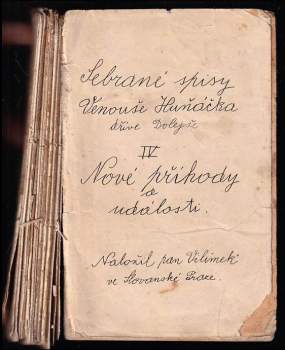 Sebrané spisy
Věnouše Huňáčka
dříve Dolejše
IV
Nové příhody
a
události.
Naložil pan Vilímek
ve Slovanské Praze.